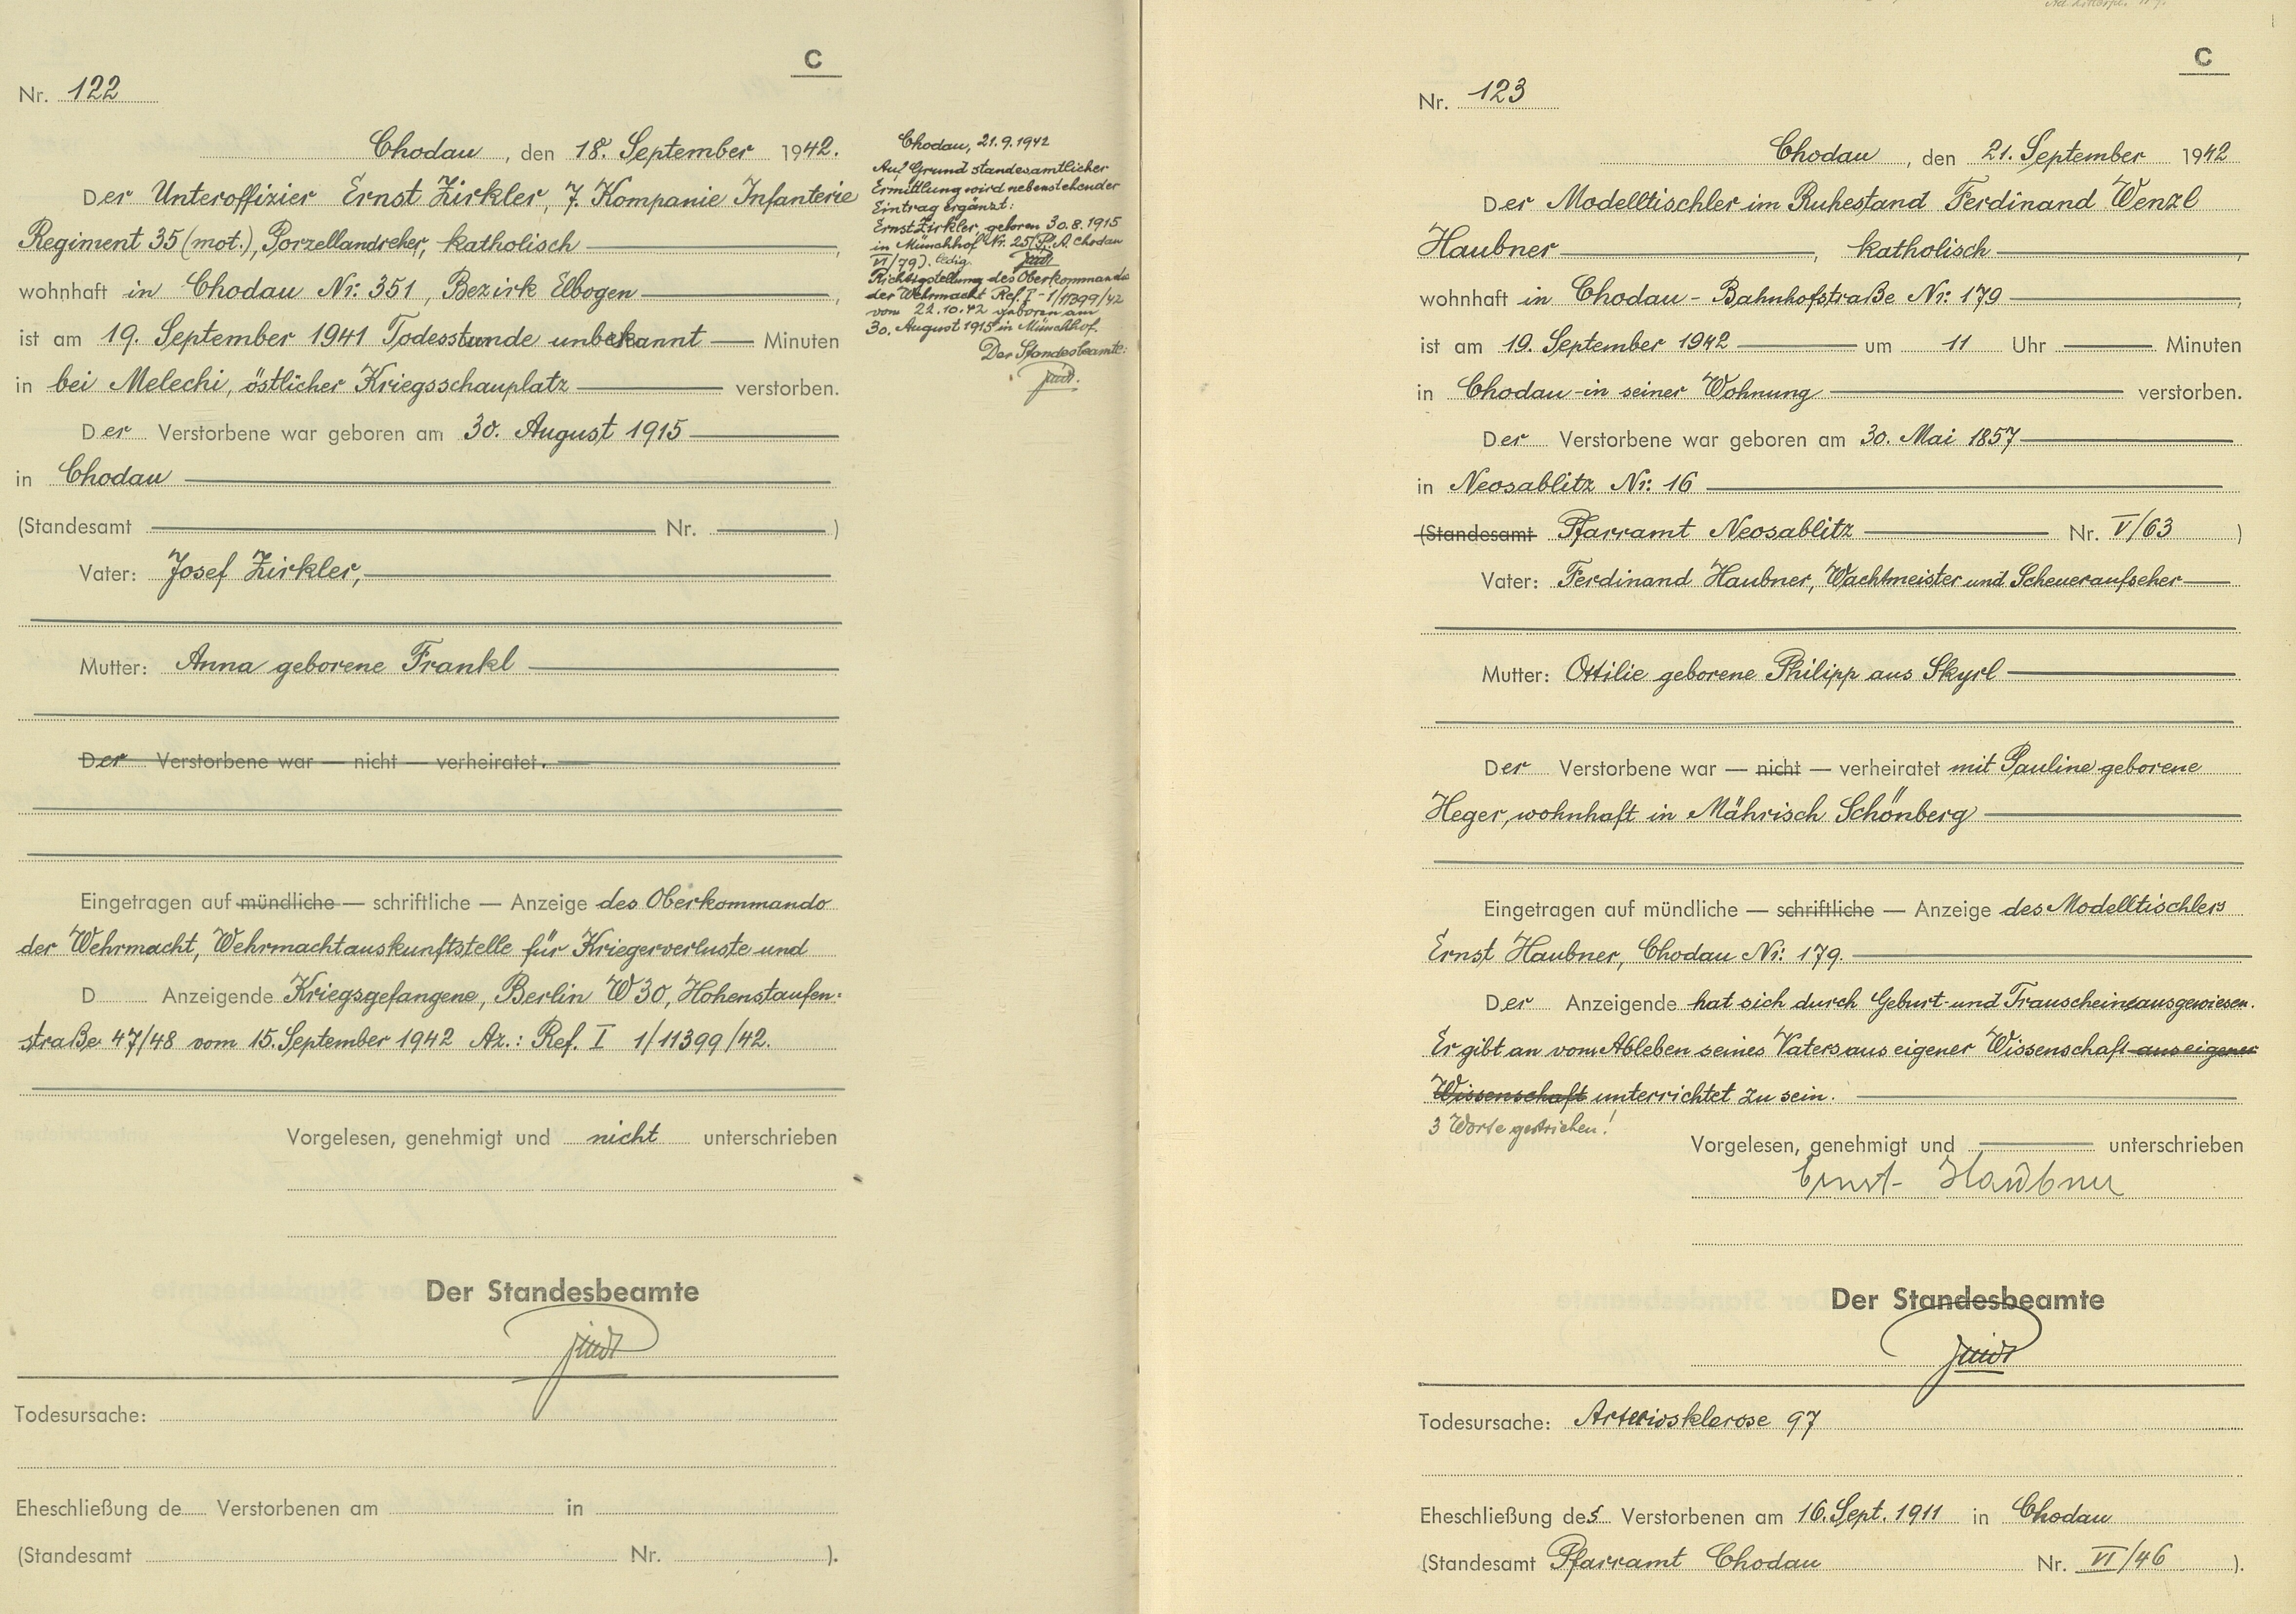 C
Nr. 122
Chodau, den 18. September 1942.
Der Unteroffizier Ernst Zirkler, 7. Kompanie Infanterie
Regiment 35 (mot.), Porzellandreher, katholisch
wohnhaft in Chodau Nr: 351, Bezirk Elbogen,
ist am 19. September 1941 Todesstunde unbekannt — Minuten
in bei Melechi, östlicher Kriegsschauplatz verstorben.
Der Verstorbene war geboren am 30. August 1915
in Chodau
(Standesamt Nr. )
Vater: Josef Zirkler,
Mutter: Anna geborene Frankl
Der Verstorbene war — nicht — verheiratet.
Eingetragen auf mündliche — schriftliche — Anzeige des Oberkommando
der Wehrmacht, Wehrmachtauskunftstelle für Kriegerverluste und
D Anzeigende Kriegsgefangene, Berlin W 30, Hohenstaufen:
straße 47/48 vom 15. September 1942 Az.: Ref. I 1/11399/42.
Vorgelesen, genehmigt und nicht unterschrieben
Der Standesbeamte
Todesursache:
Eheschließung de Verstorbenen am in
(Standesamt Nr. ).
Chodau, 21.9.1942
Auf Grund standesamtlicher
Ermittlung wird nebenstehender
Eintrag ergänzt:
Ernst Zirkler, geboren 30.8.1915
in Münchhof Nr. 25 (P.A. Chodau
VI/79). ledig.
Richtigstellung des Oberkommando
der Wehrmacht Ref. I - 1/11399/42
vom 22.10.42 geboren am
30. August 1915 in Münchhof.
Der Standesbeamte:
C
Nr. 123
Chodau, den 21. September 1942
Der Modelltischler im Ruhestand Ferdinand Wenzl
Haubner, katholisch,
wohnhaft in Chodau - Bahnhofstraße Nr: 179,
ist am 19. September 1942 um 11 Uhr Minuten
in Chodau - in seiner Wohnung verstorben.
Der Verstorbene war geboren am 30. Mai 1857
in Neosablitz Nr: 16
(Standesamt Pfarramt Neosablitz Nr. V/63 )
Vater: Ferdinand Haubner, Wachtmeister und Scheueraufseher
Mutter: Ottilie geborene Philipp aus Skyrl
Der Verstorbene war — nicht — verheiratet mit Pauline geborene
Heger, wohnhaft in Mährisch Schönberg
Eingetragen auf mündliche — schriftliche — Anzeige des Modelltischlers
Ernst Haubner, Chodau Nr: 179.
Der Anzeigende hat sich durch Geburt- und Trauscheine ausgewiesen.
Er gibt an vom Ableben seines Vaters aus eigener Wissenschaft aus eigener
Wissenschaft unterrichtet zu sein.
3 Worte gestrichen!
Vorgelesen, genehmigt und unterschrieben
Ernst Haubner
Der Standesbeamte
Todesursache: Arteriosklerose 97
Eheschließung des Verstorbenen am 16. Sept. 1911 in Chodau
(Standesamt Pfarramt Chodau Nr. VI/46 ).